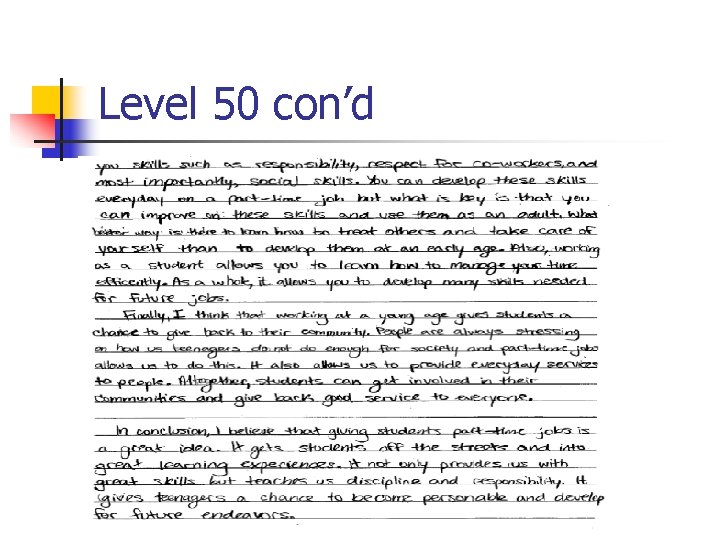 Level 50 con'd
you skills such as responsibility, respect for co-workers, and
most importantly, social skills. You can develop these skills
everyday on a part-time job but what is key is that you
can improve on these skills and use them as an adult. What
better way is there to learn how to treat others and take care of
yourself than to develop them at an early age. Also, working
as a student allows you to learn how to manage your time
efficently. As a whole, it allows you to develop many skills needed
for future jobs.
Finally, I think that working at a young age gives students a
chance to give back to their community. People are always stressing
on how us teenagers do not do enough for society and part-time jobs
allows us to do this. It also allows us to provide everyday services
to people. Altogether, students can get involved in their
communities and give back good service to everyone.
In conclusion, I believe that giving students part-time jobs is
a great idea. It gets students off the streets and into
great learning experiences. It not only provides us with
great skills but teaches us discipline and responsibility. It
gives teenagers a chance to become personable and develop
for future endeavors.